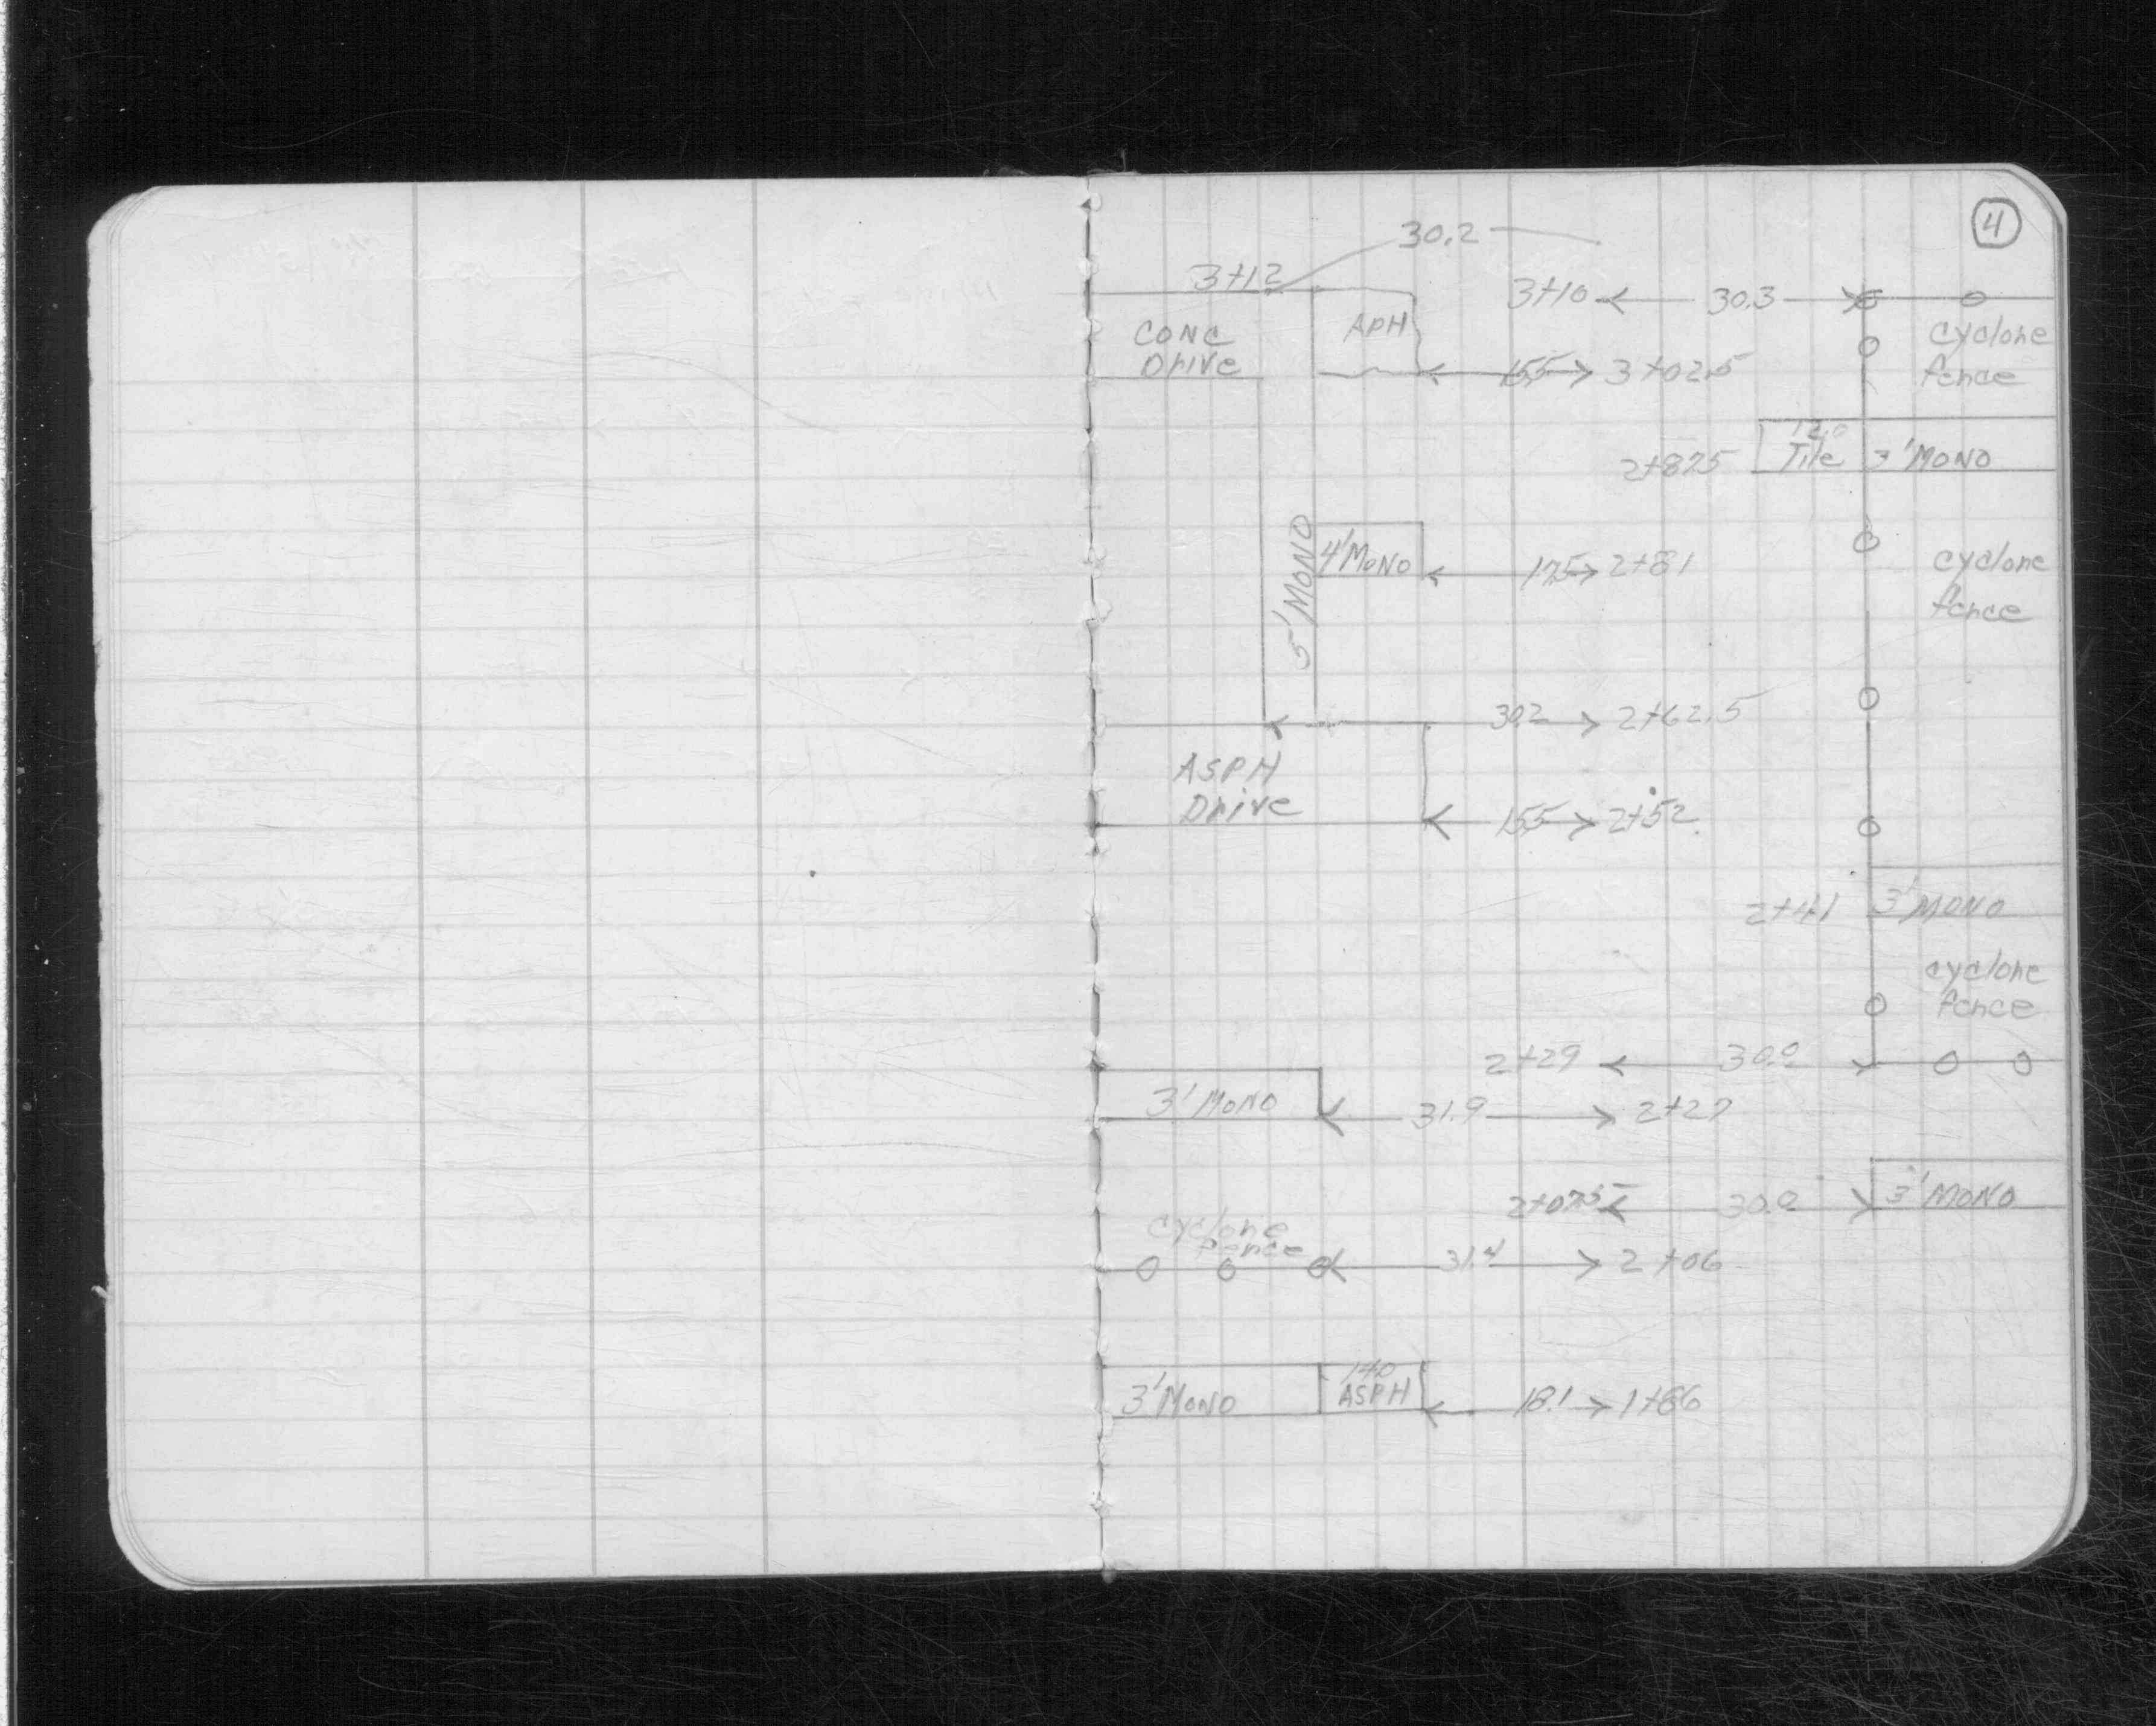 4
30.2
3+12
3+10 30.3
CONC APH cyclone
Drive fence
15.5 3+02.5
12.0
2+87.5 Tile 3'MONO
5'MONO 4'MONO 17.5 2+81 cyclone
fence
30.2 2+62.5
ASPH
Drive
15.5 2+52
2+41 3'MONO
cyclone
fence
2+29 30.0
3'MONO 31.9 2+27
2+07.5 30.0 3'MONO
cyclone
fence
31.4 2+06
14.0
3'MONO ASPH 18.1 1+86